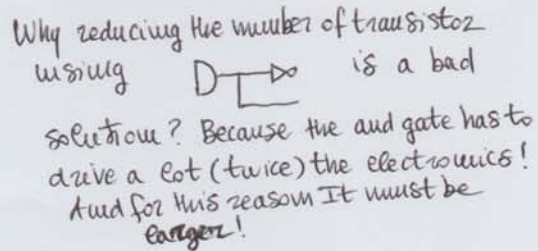 Why reducing the number of transistor
using is a bad
solution? Because the and gate has to
drive a lot (twice) the electronics!
And for this reason It must be
larger!